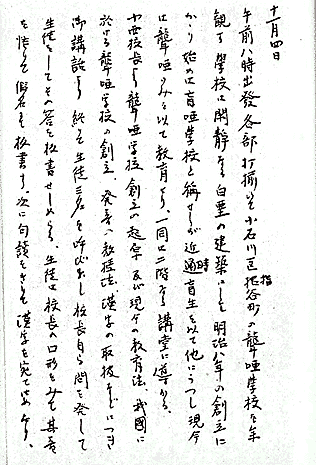 十一月四日
午前八時出發各部打揃ひて小石川區指谷町の聾唖學校を参
観す 學校は閑静なる白亜の建築にして明治八年の創立に
かゝり始めは盲唖學校と稱せしが近時盲生を以て他にうつし現今
は聾唖のみを以て教育せり、一同は二階なる講堂に導かる、
小西校長より聾唖學校創立の起原及び現今の教育法、我國に
於ける聾唖學校の創立、發音の教授法、漢字の取扱などにつき
御講話あり 終て生徒三名を呼び出し校長自ら問を發して
生徒をしてその答を板書せしめらる、生徒は校長の口形をみて其音
を悟りて假名を板書す、次に句讀をきりて漢字を宛てはめたり、